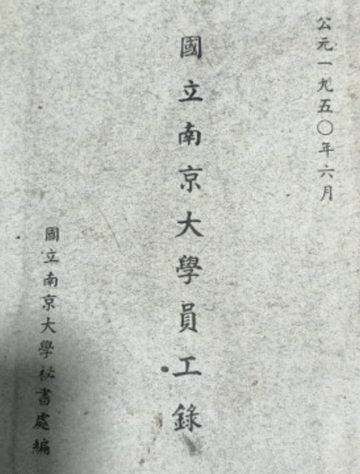 公元一九五〇年六月
國立南京大學員工錄
國立南京大學祕書處編